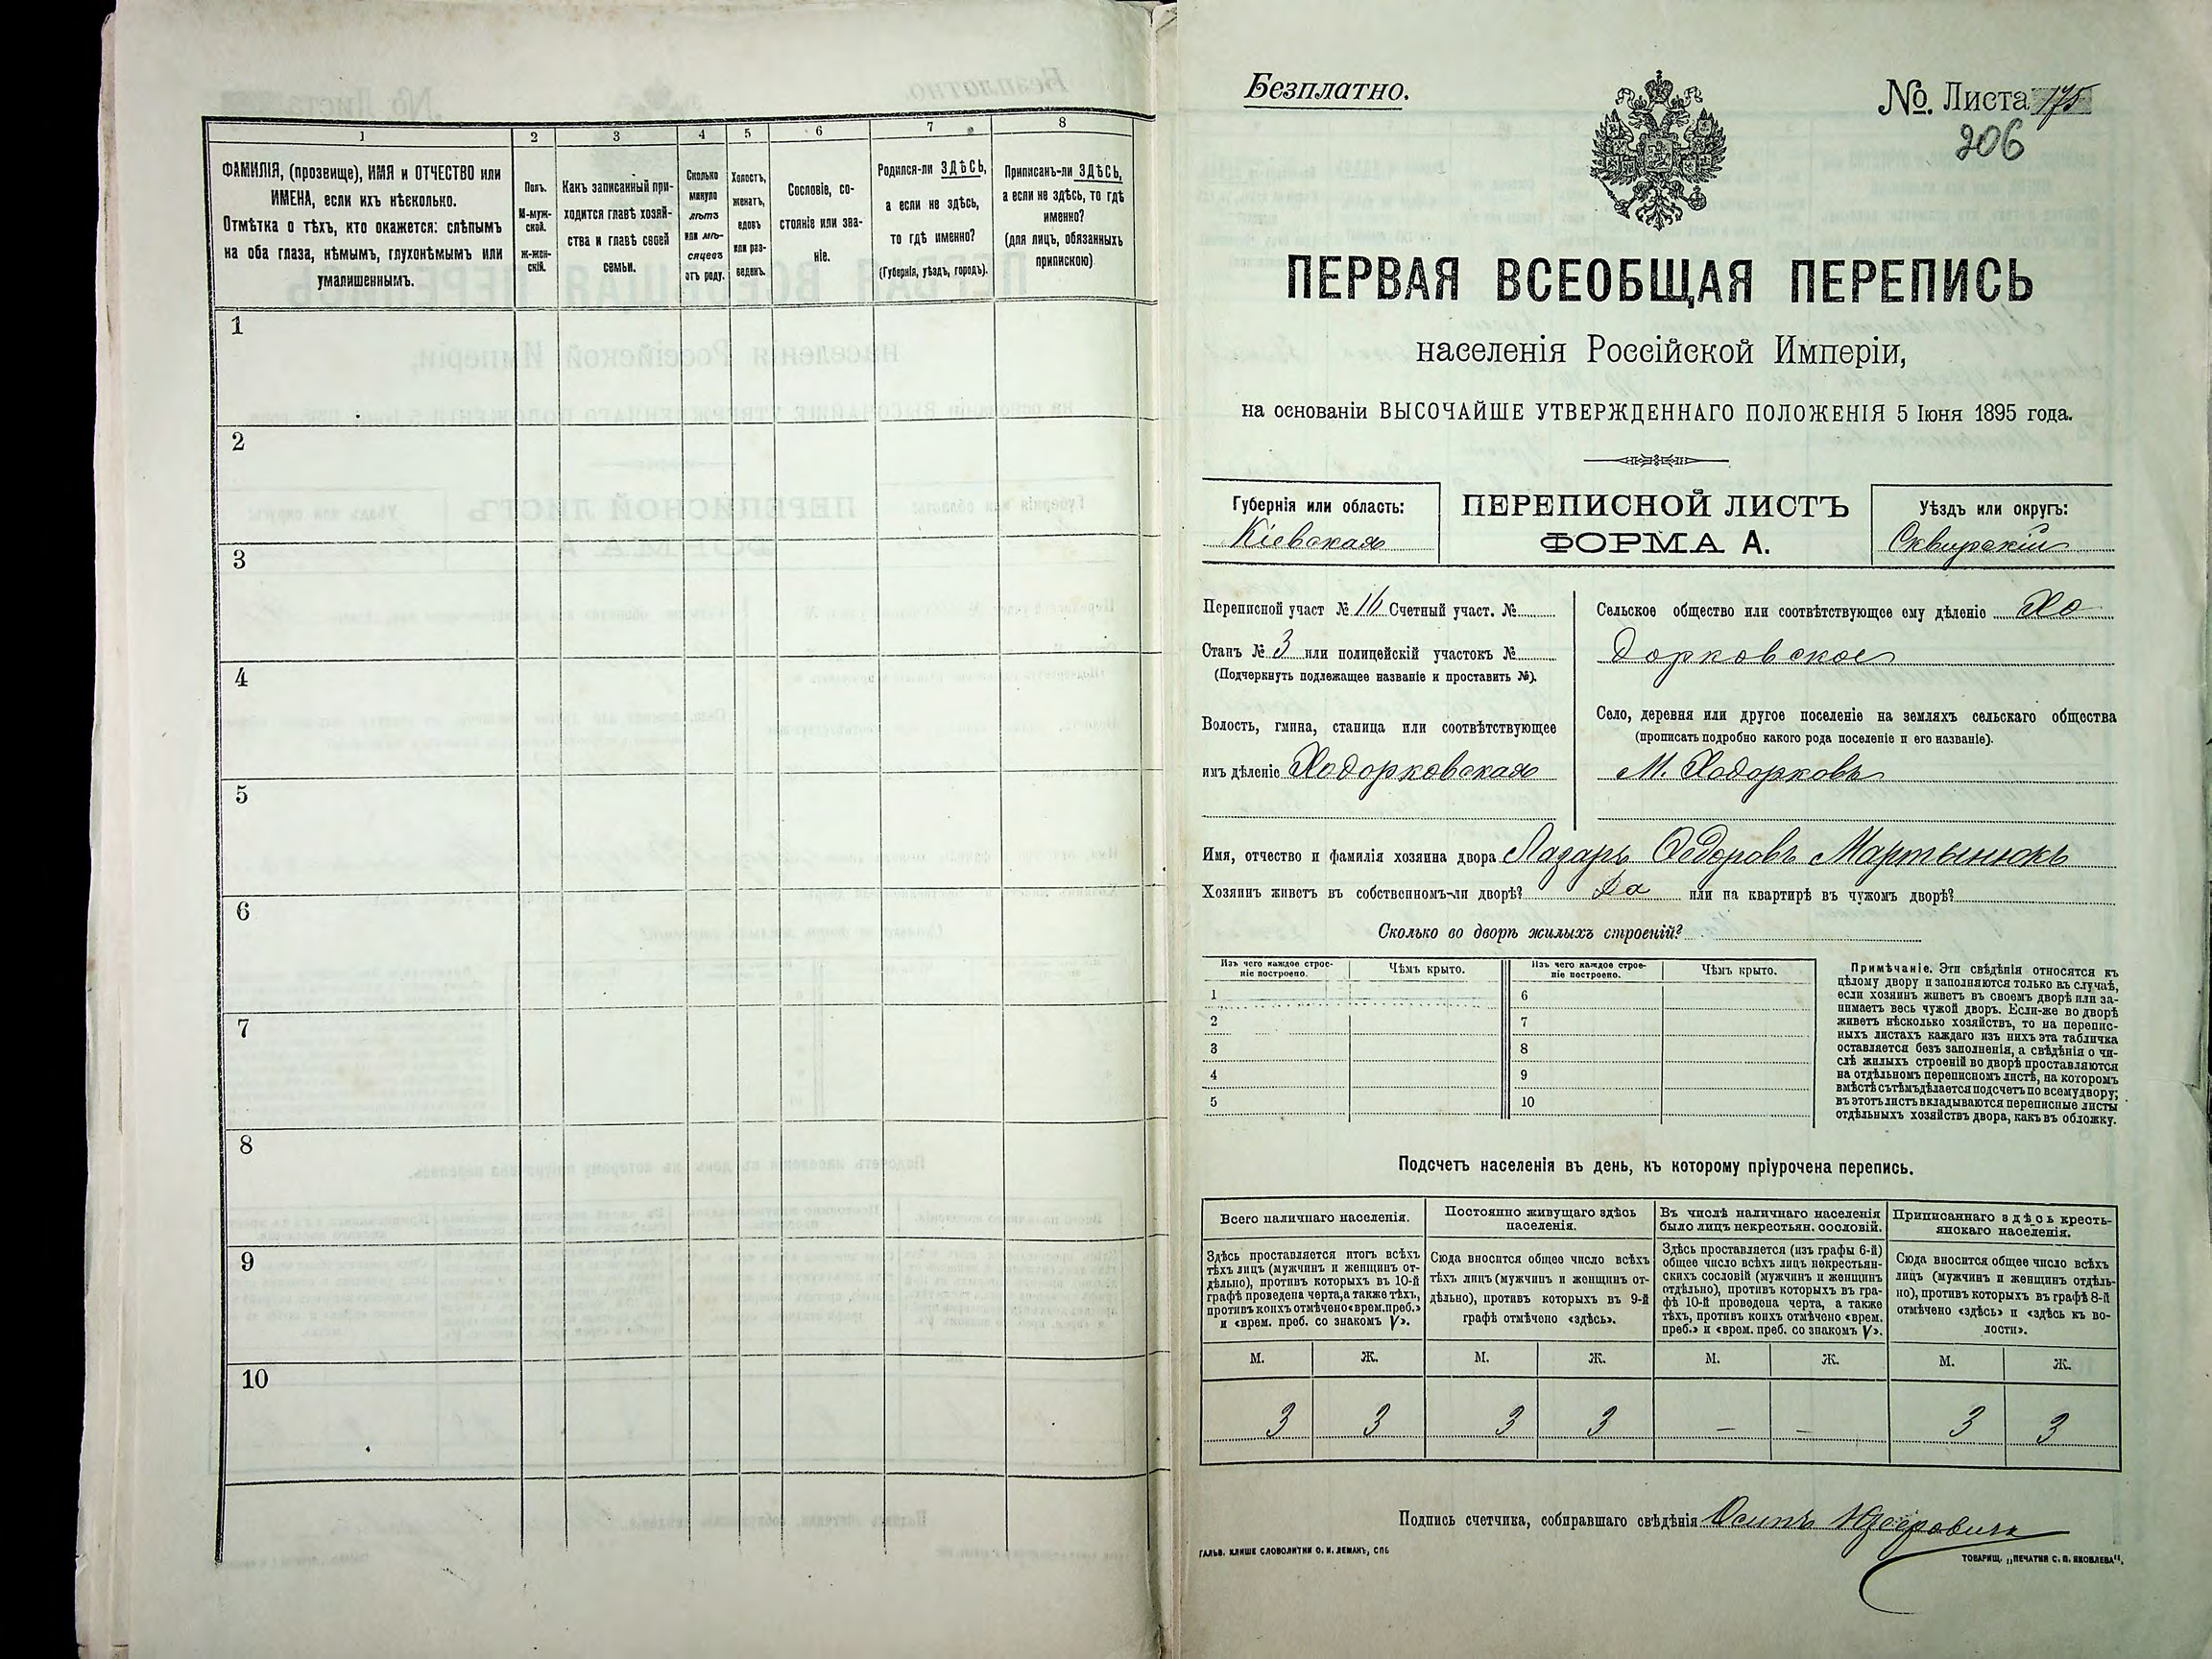 1
2
3
4
5
6
7
8
ФАМИЛІЯ, (прозвище), ИМЯ и ОТЧЕСТВО или
ИМЕНА, если ихъ нѣсколько.
Отмѣтка о тѣхъ, кто окажется: слѣпымъ
на оба глаза, нѣмымъ, глухонѣмымъ или
умалишеннымъ.
Полъ.
М-муж-
ской.
Ж-жен-
скій.
Какъ записанный при-
ходится главѣ хозяй-
ства и главѣ своей
семьи.
Сколько
минуло
лѣтъ
или мѣ-
сяцевъ
отъ роду.
Холостъ,
женатъ,
вдовъ
или раз-
веденъ.
Сословіе, со-
стояніе или зва-
ніе.
Родился-ли ЗДѢСЬ,
а если не здѣсь,
то гдѣ именно?
(Губернія, уѣздъ, городъ).
Приписанъ-ли ЗДѢСЬ,
а если не здѣсь, то гдѣ
именно?
(для лицъ, обязанныхъ
припискою)
1
2
3
4
5
6
7
8
9
10
Безплатно.
№. Листа 175
206
ПЕРВАЯ ВСЕОБЩАЯ ПЕРЕПИСЬ
населенія Россійской Имперіи,
на основаніи ВЫСОЧАЙШЕ УТВЕРЖДЕННАГО ПОЛОЖЕНІЯ 5 Іюня 1895 года.
Губернія или область:
Кіевская
ПЕРЕПИСНОЙ ЛИСТЪ
ФОРМА А.
Уѣздъ или округъ:
Сквирскій
Переписной участ № 16 Счетный участ. №
Станъ № 3 или полицейскій участокъ №
(Подчеркнуть подлежащее названіе и проставить №).
Волость, гмина, станица или соотвѣтствующее
имъ дѣленіе Ходорковская
Сельское общество или соотвѣтствующее ему дѣленіе Хо
дорковское
Село, деревня или другое поселеніе на земляхъ сельскаго общества
(прописать подробно какого рода поселеніе и его названіе).
М. Ходорковъ
Имя, отчество и фамилія хозяина двора Лазарь Ѳедоровъ Мартынюкъ
Хозяинъ живетъ въ собственномъ-ли дворѣ? Да или на квартирѣ въ чужомъ дворѣ?
Сколько во дворѣ жилыхъ строеній?
Изъ чего каждое строе-
ніе построено.
Чѣмъ крыто.
Изъ чего каждое строе-
ніе построено.
Чѣмъ крыто.
1
2
3
4
5
6
7
8
9
10
Примѣчаніе. Эти свѣдѣнія относятся къ
цѣлому двору и заполняются только въ случаѣ,
если хозяинъ живетъ въ своемъ дворѣ или за-
нимаетъ весь чужой дворъ. Если-же во дворѣ
живетъ нѣсколько хозяйствъ, то на перепис-
ныхъ листахъ каждаго изъ нихъ эта табличка
оставляется безъ заполненія, а свѣдѣнія о чи-
слѣ жилыхъ строеній во дворѣ проставляются
на отдѣльномъ переписномъ листѣ, на которомъ
вмѣстѣ съ тѣмъ дѣлается подсчетъ по всему двору;
въ этотъ листъ вкладываются переписные листы
отдѣльныхъ хозяйствъ двора, какъ въ обложку.
Подсчетъ населенія въ день, къ которому пріурочена перепись.
Всего наличнаго населенія.
Здѣсь проставляется итогъ всѣхъ
тѣхъ лицъ (мужчинъ и женщинъ от-
дѣльно), противъ которыхъ въ 10-й
графѣ проведена черта, а также тѣхъ,
противъ коихъ отмѣчено «врем. преб.»
и «врем. преб. со знакомъ V».
Постоянно живущаго здѣсь
населенія.
Сюда вносится общее число всѣхъ
тѣхъ лицъ (мужчинъ и женщинъ от-
дѣльно), противъ которыхъ въ 9-й
графѣ отмѣчено «здѣсь».
Въ числѣ наличнаго населенія
было лицъ некрестьян. сословій.
Здѣсь проставляется (изъ графы 6-й)
общее число всѣхъ лицъ некрестьян-
скихъ сословій (мужчинъ и женщинъ
отдѣльно), противъ которыхъ въ гра-
фѣ 10-й проведена черта, а также
тѣхъ, противъ коихъ отмѣчено «врем.
преб.» и «врем. преб. со знакомъ V».
Приписаннаго здѣсь кресть-
янскаго населенія.
Сюда вносится общее число всѣхъ
лицъ (мужчинъ и женщинъ отдѣль-
но), противъ которыхъ въ графѣ 8-й
отмѣчено «здѣсь» и «здѣсь къ во-
лости».
М. Ж. М. Ж. М. Ж. М. Ж.
3 3 3 3 — — 3 3
Подпись счетчика, собиравшаго свѣдѣнія Осипъ
ГАЛЬВ. КЛИШЕ СЛОВОЛИТНИ О. И. ЛЕМАНЪ, СПБ
ТОВАРИЩ. „ПЕЧАТНЯ С. П. ЯКОВЛЕВА".